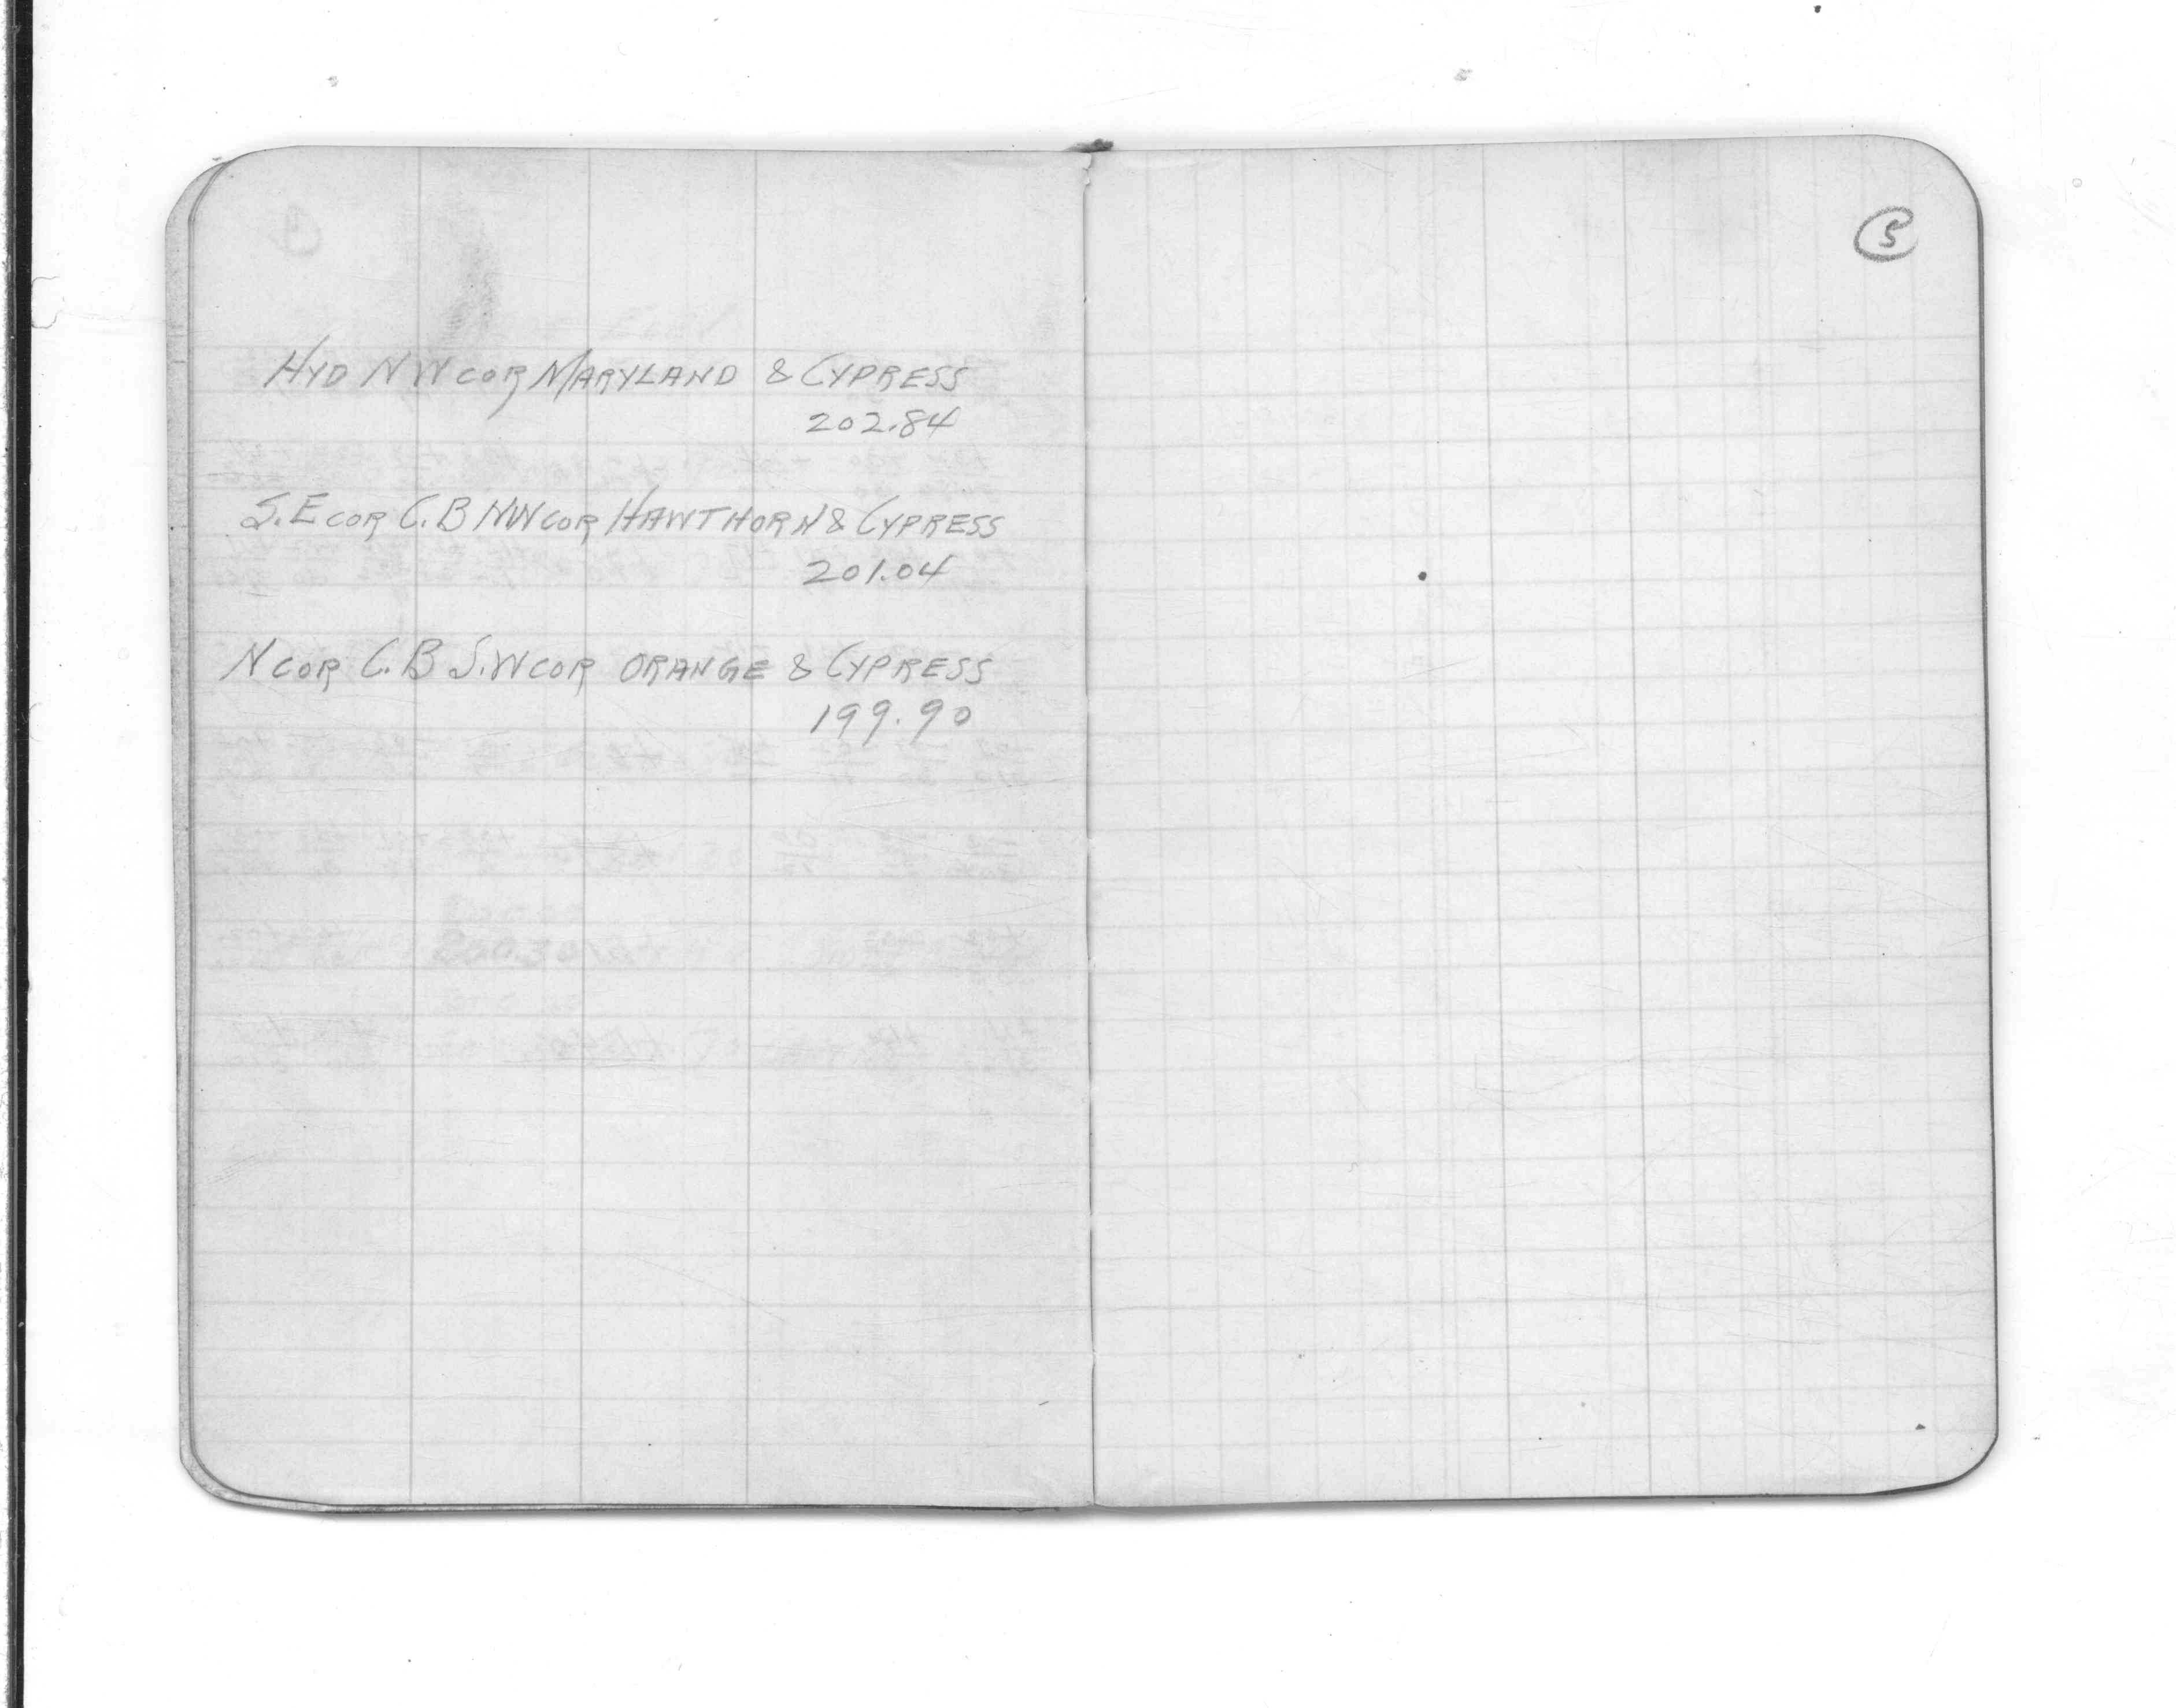 HYD NW COR MARYLAND & CYPRESS
202.84
S.E COR C.B NW COR HAWTHORN & CYPRESS
201.04
N COR C.B S.W COR ORANGE & CYPRESS
199.90
5